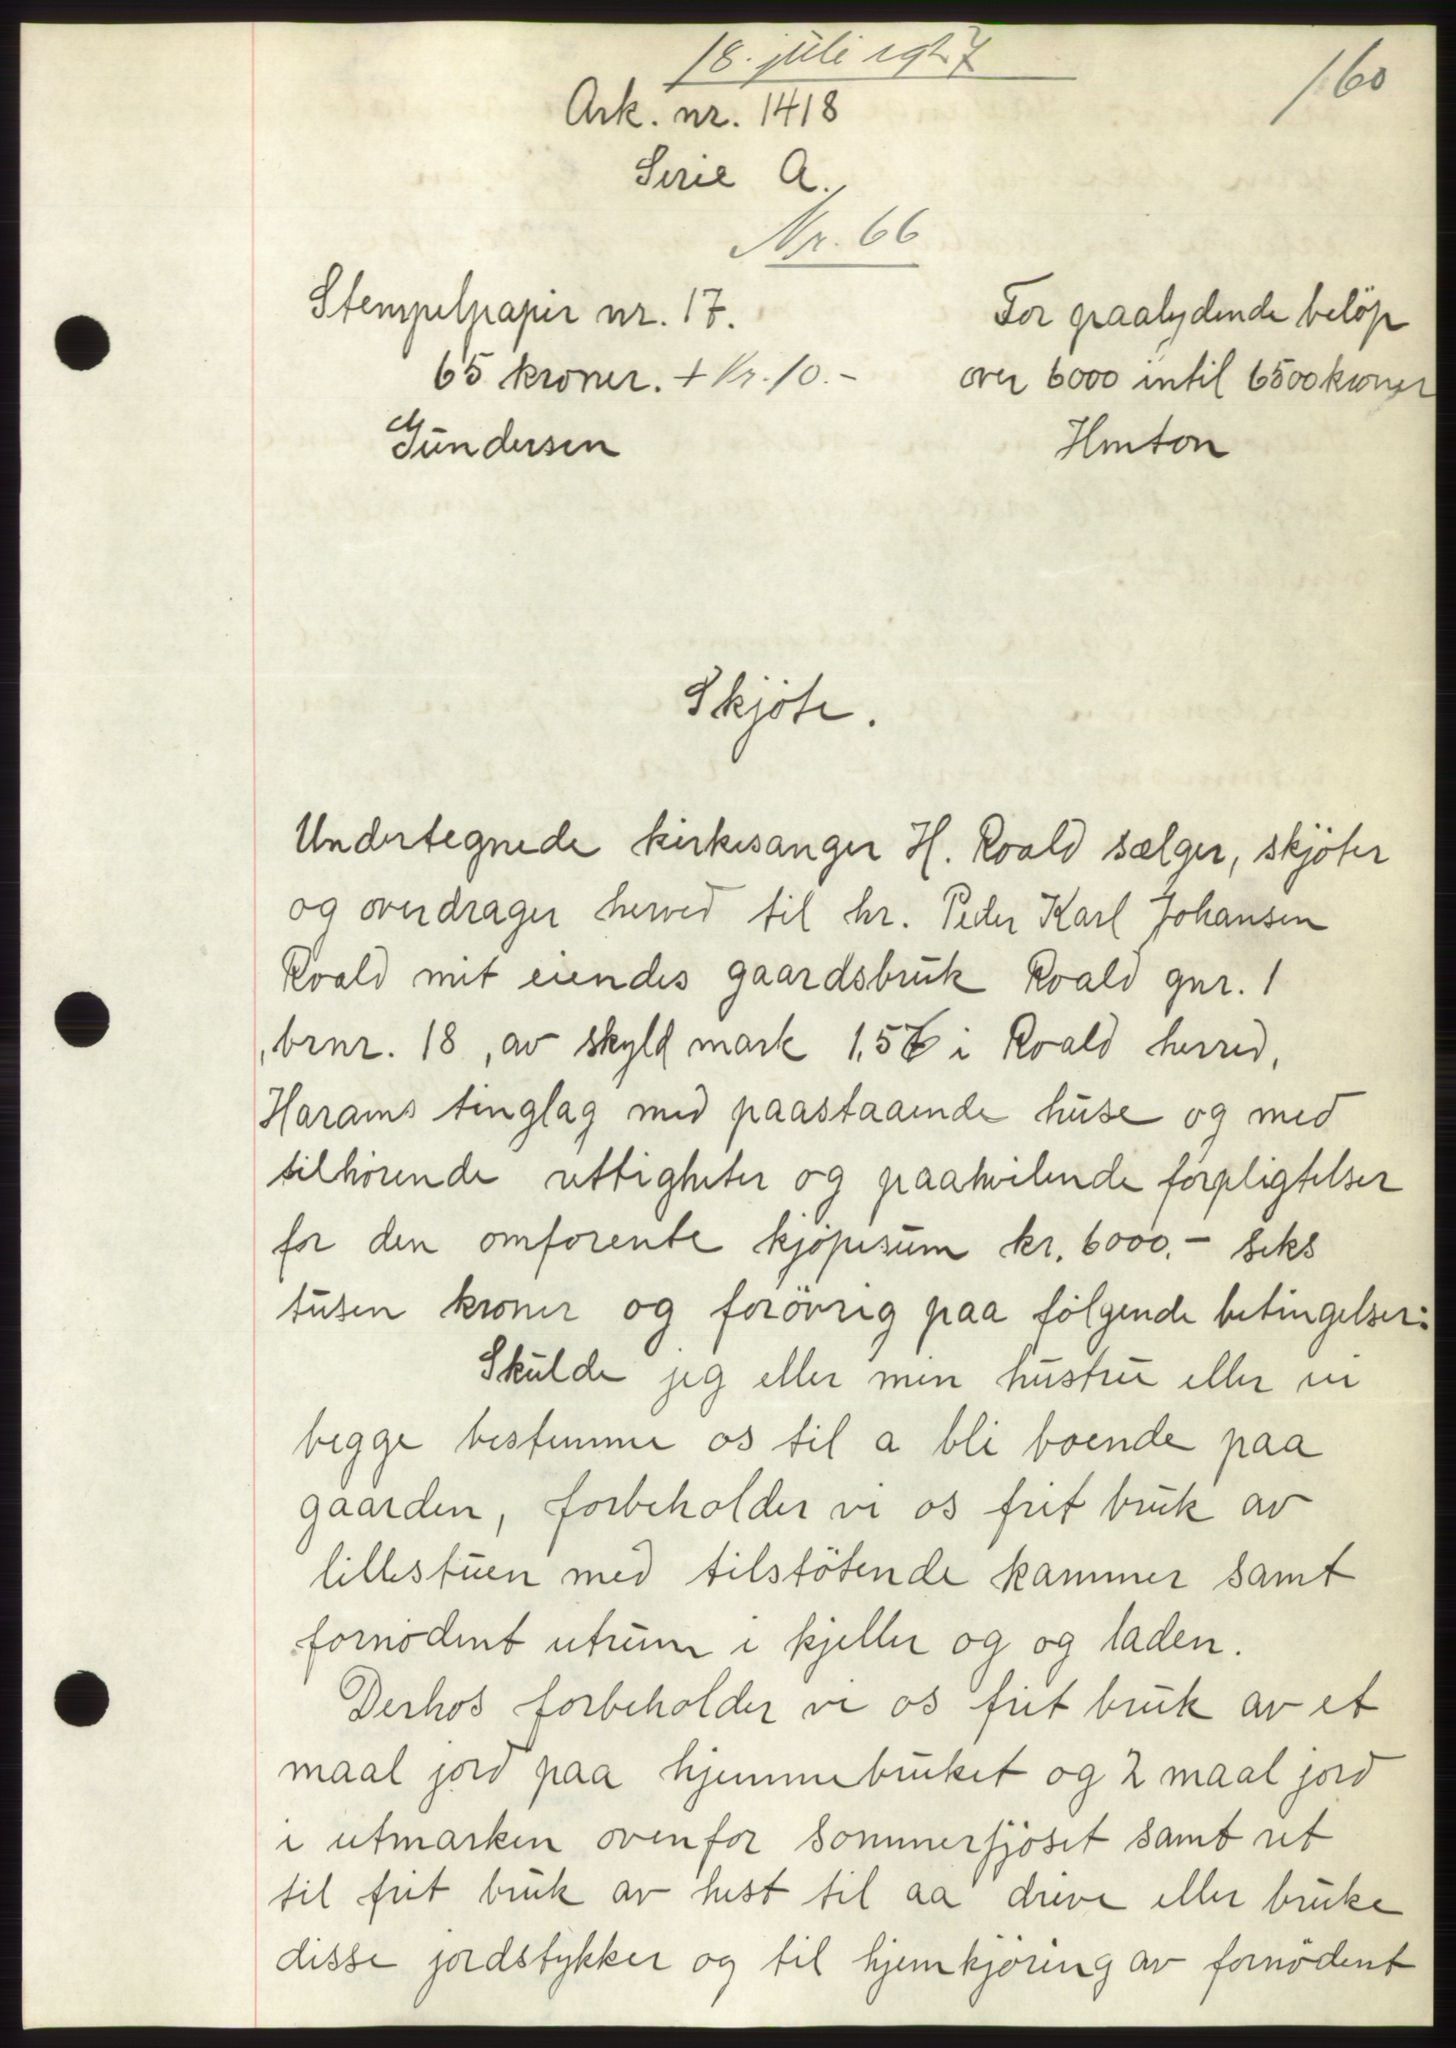 18. juli 1927
160
Ark. nr. 1418
Serie A.
Nr. 66
Stempelpapir nr. 17.
65 kroner. + Kr. 10.-
Gundersen
For paalydende beløp
over 6000 intil 6500 kroner
Skjøte.
Undertegnede kirkesanger H. Roald sælger, skjøter
og overdrager herved til hr. Peder Karl Johansen
Roald mit eiendes gaardsbruk Roald gnr. 1
, brnr. 18, av skyld mark 1,5 i Roald herred,
Harams tinglag med paastaaende huse og med
tilhørende rettigheter og paahvilende forpligtelser
for den omforente kjøpesum kr. 6000.- seks
tusen kroner og forøvrig paa følgende betingelser:
Skulde jeg eller min hustru eller vi
begge bestemme os til a bli boende paa
gaarden, forbeholder vi os frit bruk av
lillestuen med tilstötende kammer samt
fornødent utrum i kjeller og og laden.
Derhos forbeholder vi os frit bruk av et
maal jord paa hjemmebruket og 2 maal jord
i utmarken ovenfor sommerfjøset samt ret
til frit bruk av hest til aa drive eller bruke
disse jordstykker og til hjemkjøring av fornødent